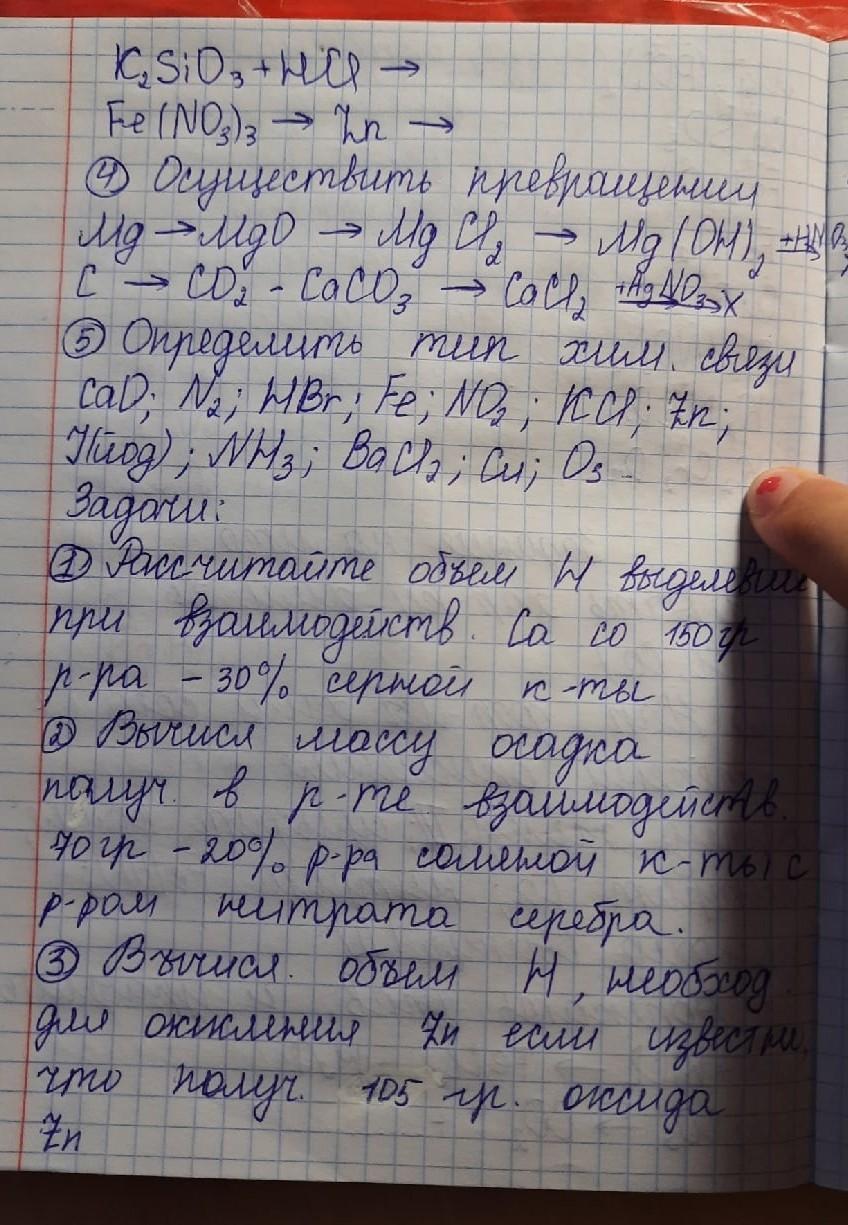 K₂SiO₃ + HCl →
Fe(NO₃)₃ → Zn →
④ Осуществить превращении
Mg → MgO → MgCl₂ → Mg(OH)₂ +HNO₃
C → CO₂ - CaCO₃ → CaCl₂ +AgNO₃→ X
⑤ Определить тип хим. связи
CaO; N₂; HBr; Fe; NO₂; KCl; Zn;
J(йод); NH₃; BaCl₂; Cu; O₃
Задачи:
① Рассчитайте объем H выделевши
при взаимодейств. Ca со 150гр
р-ра - 30% серной к-ты
② Вычисл массу осадка
получ. в р-те взаимодейств.
70гр - 20% р-ра соляной к-ты с
р-ром нитрата серебра.
③ Вычисл. объем H, необход.
для окисления Zn если известн.
что получ. 105 гр. оксида
Zn